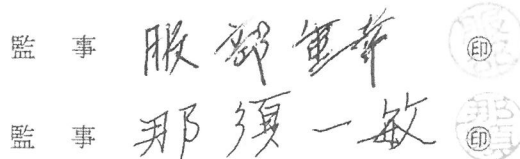 監事 服部重幸 ㊞
監事 那須一敏 ㊞